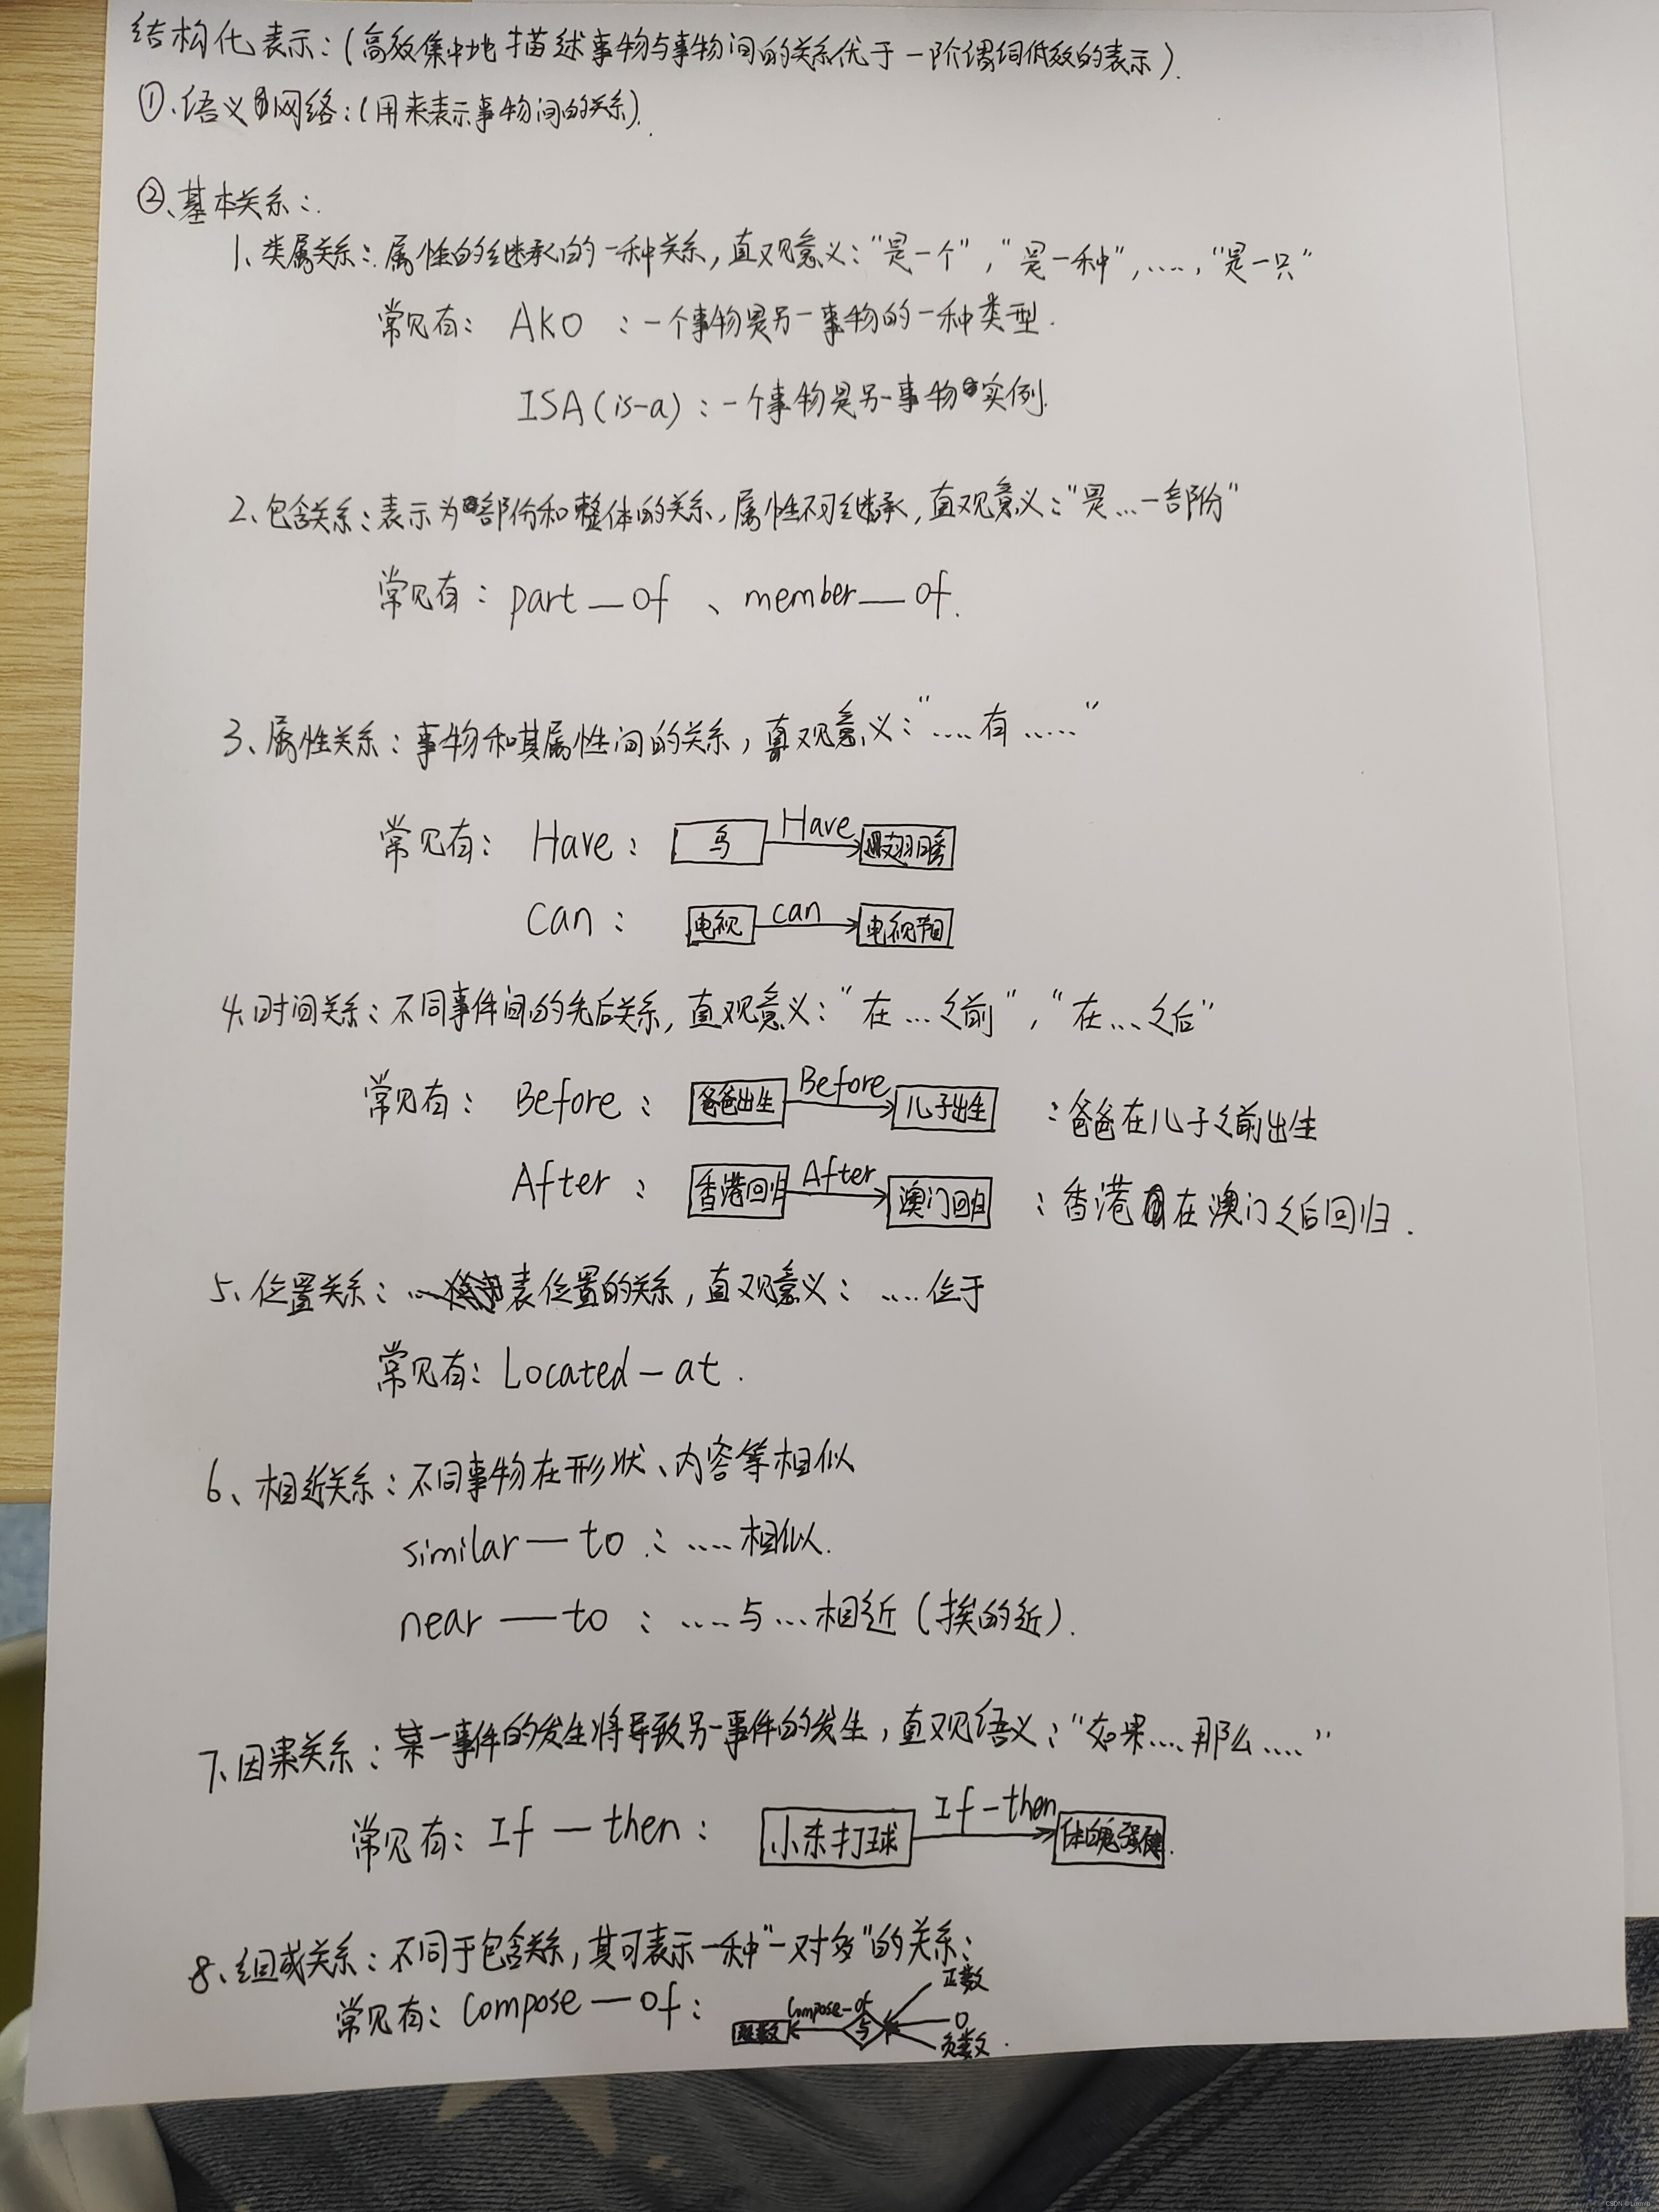 结构化表示：（高效集中地描述事物与事物间的关系优于一阶谓词低效的表示）.
①.语义网络：（用来表示事物间的关系）.
②、基本关系：.
1、类属关系：属性的继承的一种关系，直观意义：“是一个”，“是一种”，....，“是一只”
常见有：AKO：一个事物是另一事物的一种类型.
ISA（is-a）：一个事物是另一事物实例.
2、包含关系：表示为部份和整体的关系，属性不可继承，直观意义：“是...一部份”
常见有：part—of、member—of.
3、属性关系：事物和其属性间的关系，直观意义：“....有.....”
常见有：Have：鸟 Have 翅膀
can：电视 can 电视节目
4、时间关系：不同事件间的先后关系，直观意义：“在...之前”，“在...之后”
常见有：Before：爸爸出生 Before 儿子出生：爸爸在儿子之前出生
After：香港回归 After 澳门回归：香港在澳门之后回归.
5、位置关系：表位置的关系，直观意义：....位于
常见有：Located-at.
6、相近关系：不同事物在形状、内容等相似
similar—to：....相似.
near—to：....与...相近（挨的近）.
7、因果关系：某一事件的发生将导致另一事件的发生，直观语义：“如果....那么....”
常见有：If—then：小东打球 If-then 体魄强健.
8、组成关系：不同于包含关系，其可表示一种“一对多”的关系：
常见有：Compose—of：整数 Compose-of 与 正数 0 负数.
CSDN